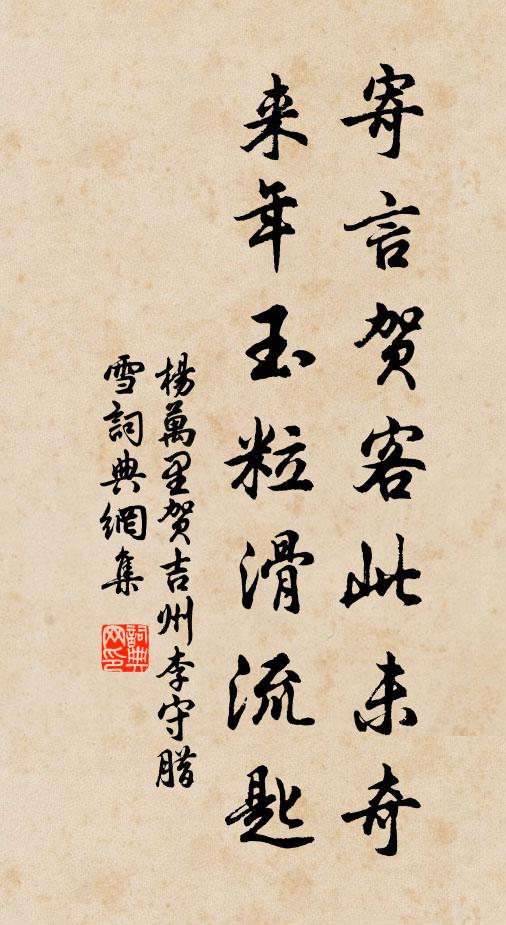 寄言贺客此未奇
来年玉粒滑流匙
楊萬里贺吉州李守腊
雪詞典網集
詞典网印